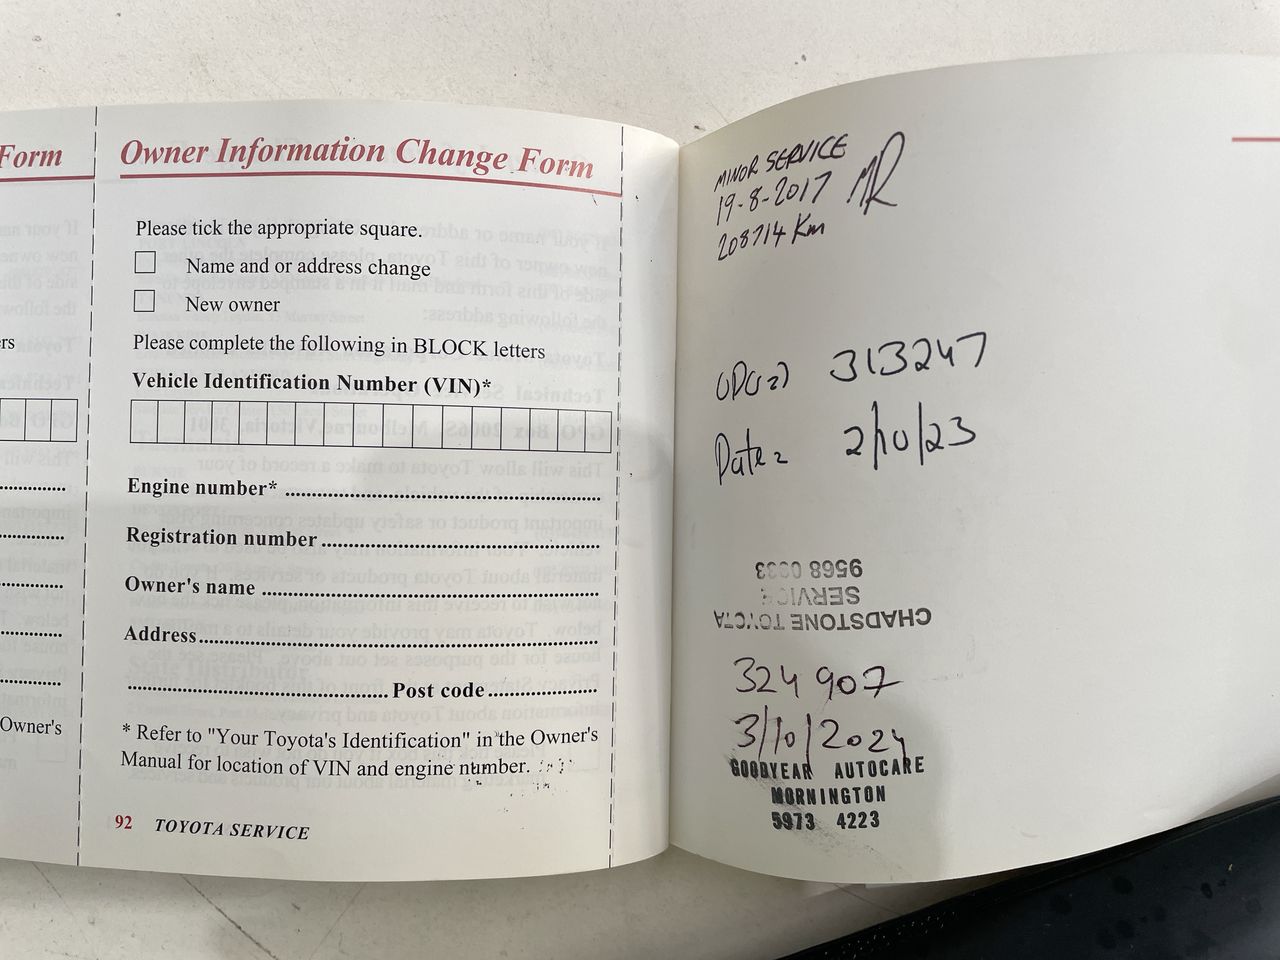 Form
Owner Information Change Form
Please tick the appropriate square.
Name and or address change
New owner
Please complete the following in BLOCK letters
Vehicle Identification Number (VIN)*
Engine number*
Registration number
Owner's name
Address
Post code
* Refer to "Your Toyota's Identification" in the Owner's
Manual for location of VIN and engine number.
92 TOYOTA SERVICE
rs
Owner's
MINOR SERVICE
19-8-2017 MR
208714 Km
313247
Date = 2/10/23
9568 0333
SERVICE
CHADSTONE TOYOTA
324 907
3/10/2024
GOODYEAR AUTOCARE
MORNINGTON
5973 4223